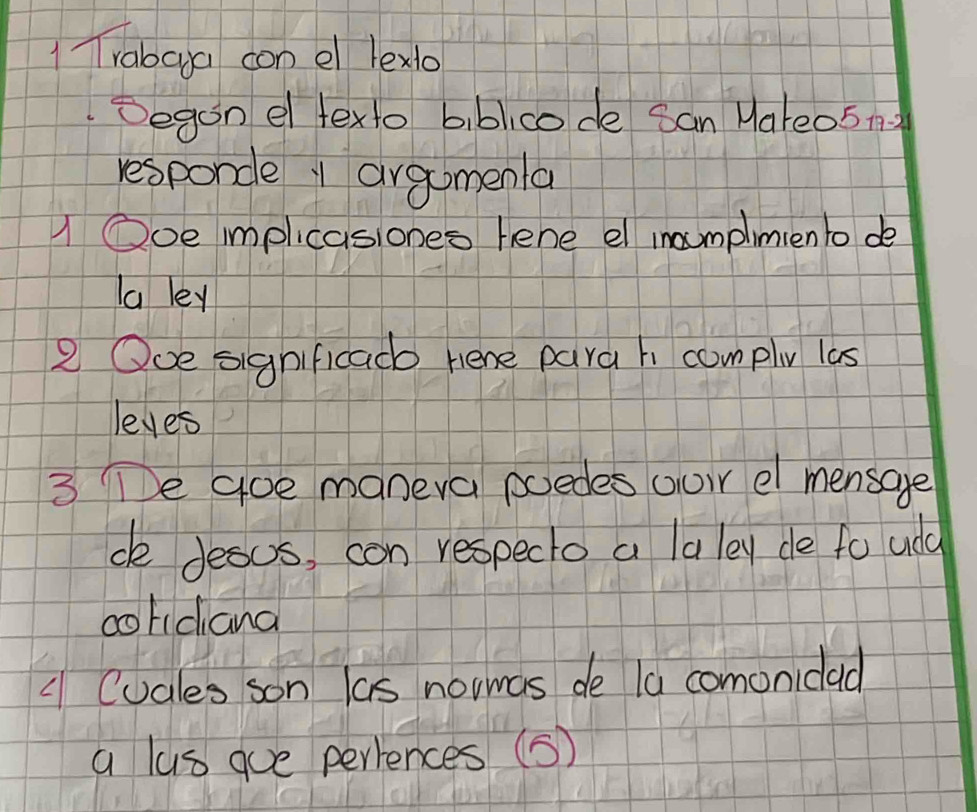 1 Trabaja con el texto
. Segun el texto biblico de San Mateo 5 17-21
responde y argumenta
1 Que implicasiones tiene el incumplimiento de
la ley
2 Que significado tiene para ti cumplir las
leyes
3 De que manera puedes vivir el mensaje
de Jesus, con respecto a la ley de tu vida
cotidiana
4 Cuales son las normas de la comunidad
a las que perteneces (5)